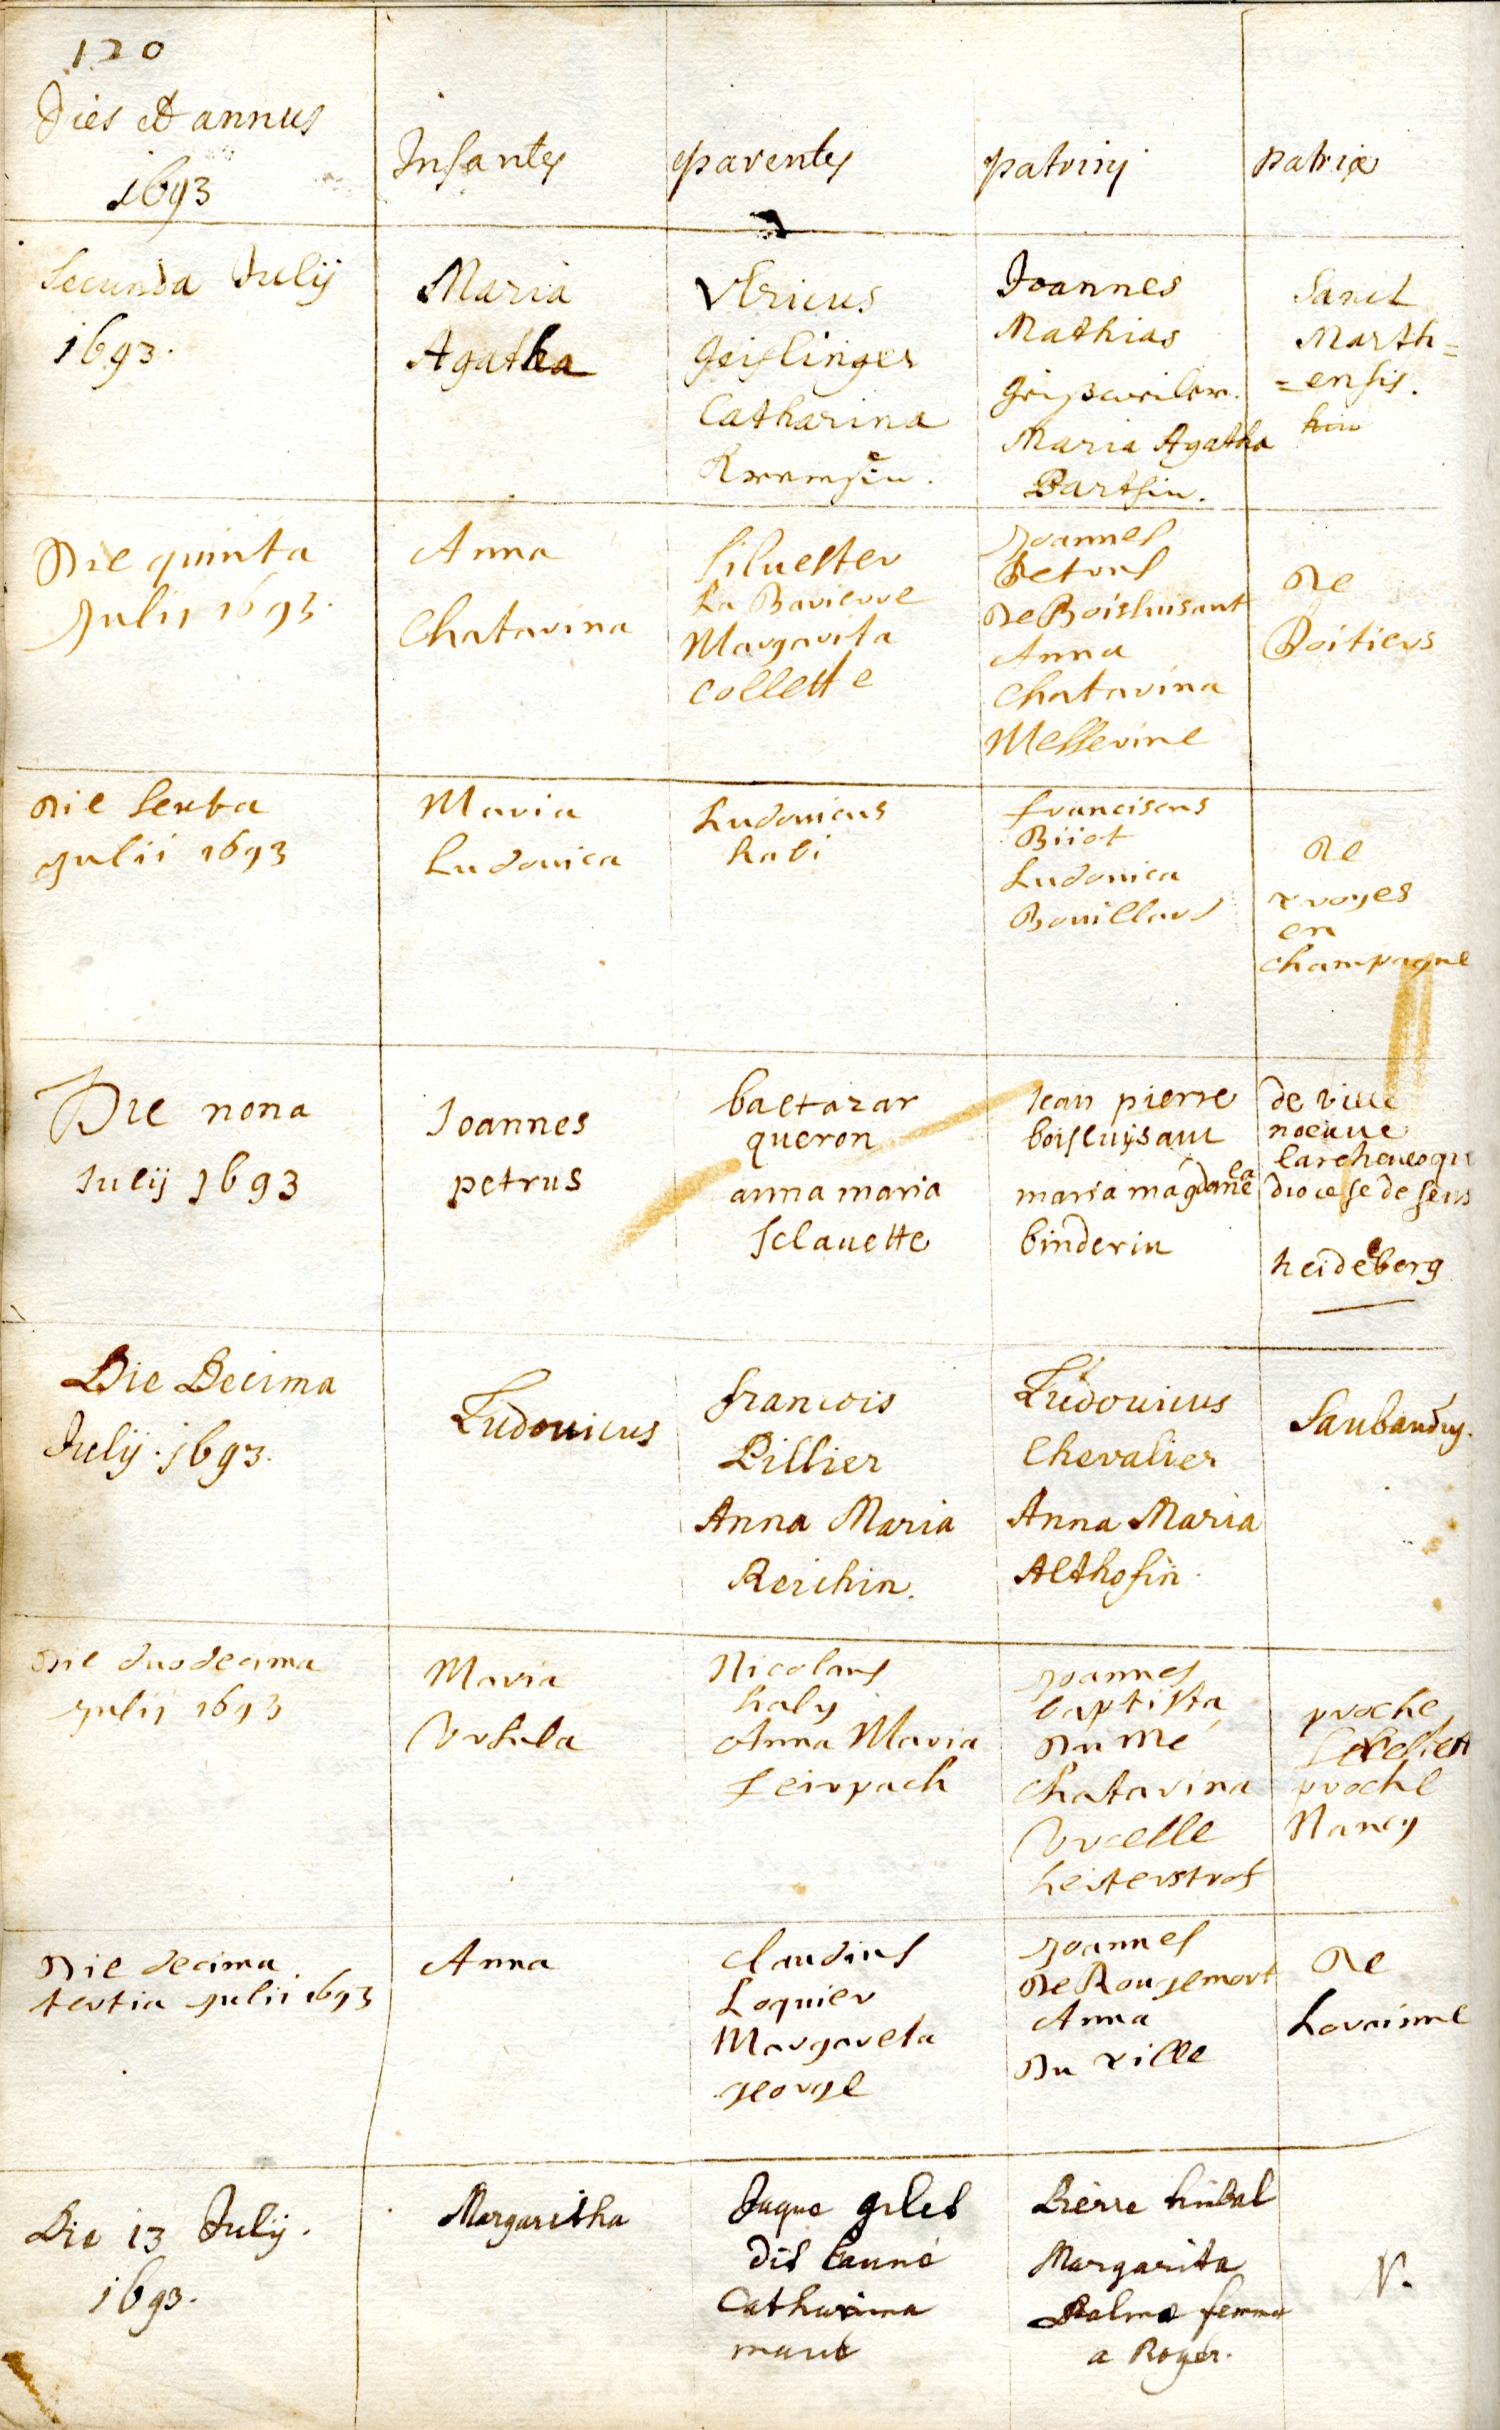 120
Dies et annus
1693
Infantes
parentes
patrini
patria
Secunda July
1693.
Maria
Agatha
Vlricus
Geislinger
Catharina
Joannes
Mathias
Maria Agatha
Bartsin.
Sanct
Marth=
=ensis.
Die quinta
Julij 1693.
Anna
Chatarina
Siluester
La Bavierre
Margarita
Collette
Joannes
Petrus
De Boisluisant
Anna
Chatarina
Messerine
De
Poitiers
Die Sexta
Julii 1693
Maria
Ludouica
Ludouicus
habi
franciscus
Biiot
Ludouica
Bouillard
De
troyes
en
champagne
Die nona
Iulij 1693
Ioannes
petrus
baltazar
queron
anna maria
sclauette
Iean pierre
boisluysant
maria magdanela
binderin
de ville
noeuue
larcheuesque
diocese de sens
heideberg
Die Decima
July. 1693.
Ludouicus
francois
Pillier
Anna Maria
Reichin.
Ludouicus
Chevalier
Anna Maria
Althofin.
Saubandry.
Die duodecima
Julij 1693
Maria
Vrsula
Nicolaus
haly
Anna Maria
feirpach
Joannes
baptista
Du Mé
Chatarina
Vrcelle
heiterstrof
proche
proche
Nancy
Die decima
tertia Julii 1693
Anna
Claudius
Loquier
Margareta
george
Joannes
De Rougemont
Anna
Du tille
De
Lorainne
Die 13 July.
1693.
Margaritha
Jaque gilet
dit Launé
Catharina
Pierre
Margarita
femme
a Roger.
N.